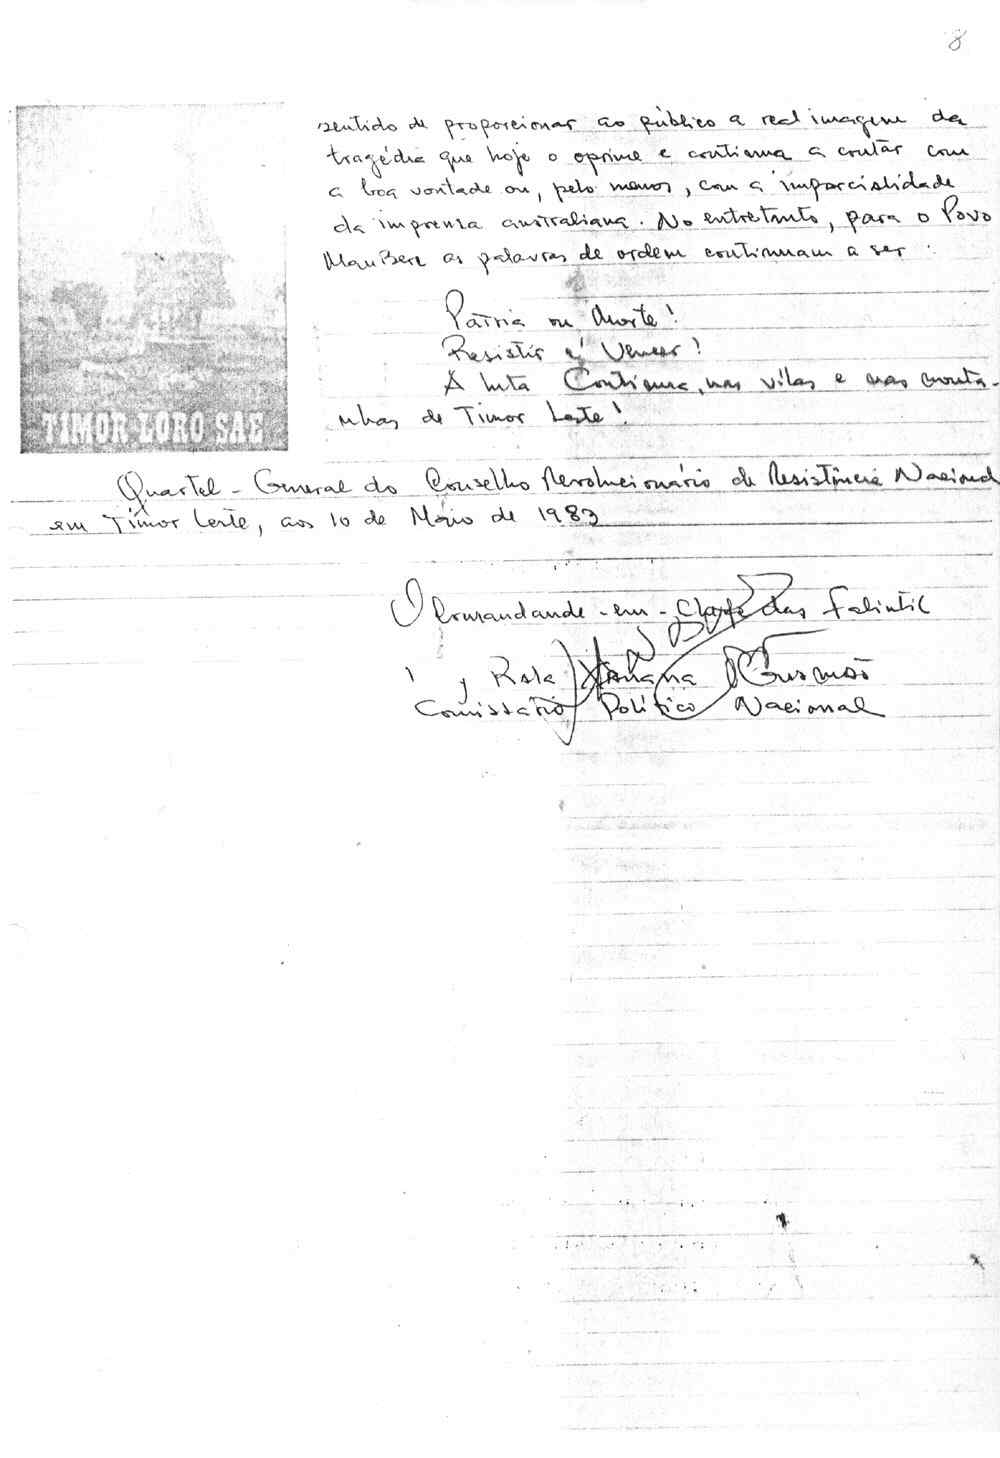 8
sentido de proporcionar ao público a real imagem da
tragédia que hoje o oprime e continua a contar com
a boa vontade ou, pelo menos, com a imparcialidade
da imprensa australiana. No entretanto, para o Povo
MauBere as palavras de ordem continuam a ser :
Pátria ou Morte!
Resistir é Vencer!
A luta Continua, nas vilas e nas monta-
nhas de Timor Leste!
TIMOR LORO SAE
Quartel-General do Conselho Revolucionário de Resistência Nacional
em Timor Leste, aos 10 de Maio de 1983
O Comandande-em-Chefe das Falintil
Kay Rala Xanana Gusmão
Comissário Político Nacional